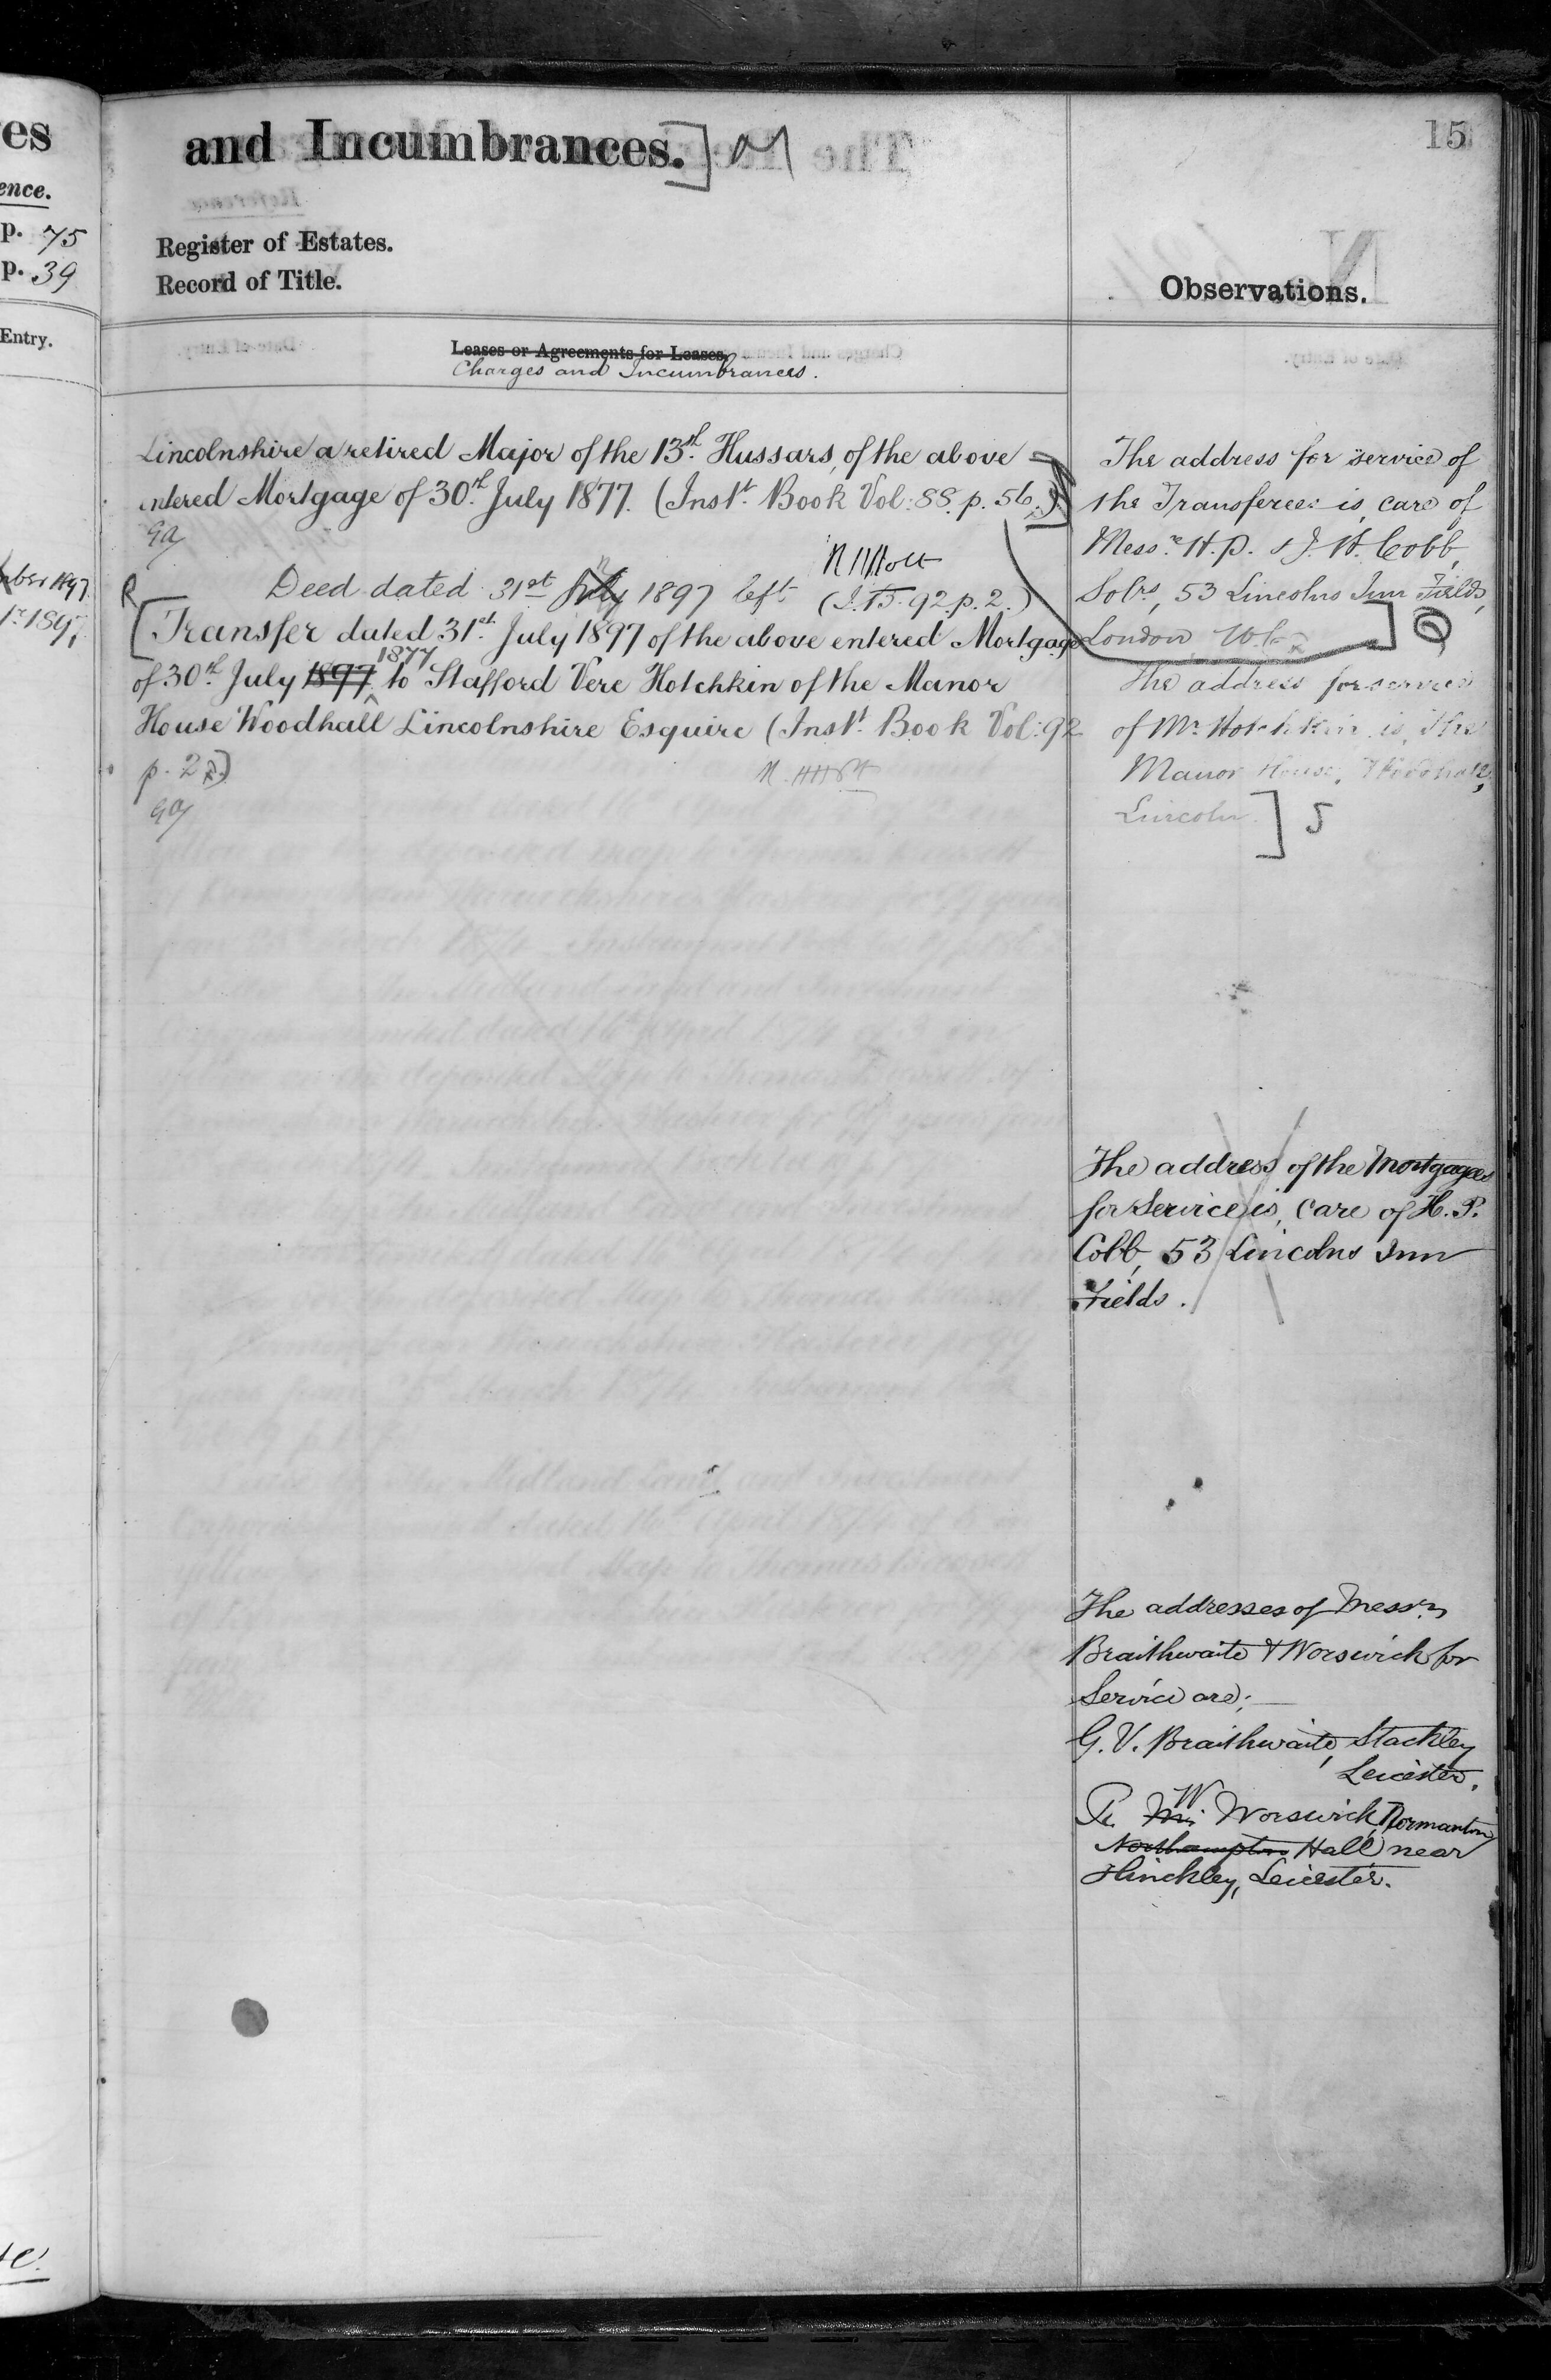 es
ence.
p. 75
p. 39
Entry.
1897
1897
and Incumbrances.]
15
Register of Estates.
Record of Title.
Observations.
Leases or Agreements for Leases.
Charges and Incumbrances.
Lincolnshire a retired Major of the 13th. Hussars, of the above
entered Mortgage of 30th. July 1877. (Inst. Book Vol: 88. p. 56.)]
GA
N H Holt
R
Deed dated 31st July 1897 left (I.B. 92. p. 2.)
[Transfer dated 31st. July 1897 of the above entered Mortgage
1877
of 30th. July 1897 to Stafford Vere Hotchkin of the Manor
House Woodhall Lincolnshire Esquire (Inst. Book Vol: 92
p. 2.)
GA
The address for service of
the Transferee: is, care of
Messrs. H. P. & J. H. Cobb,
Solrs, 53 Lincolns Inn Fields,
London W.C. ]
The address for service
of Mr. Hotchkin is, The
Manor House, Woodhall,
Lincoln. ] 5
The address of the Mortgagees
for Service is, care of H. P.
Cobb, 53 Lincolns Inn
Fields.
The addresses of Messrs
Braithwaite & Worswick for
Service are:—
G. V. Braithwaite, Stackley
Leicester.
W
R. Worswick, Normanton
Northampton Hall, near
Hinckley, Leicester.